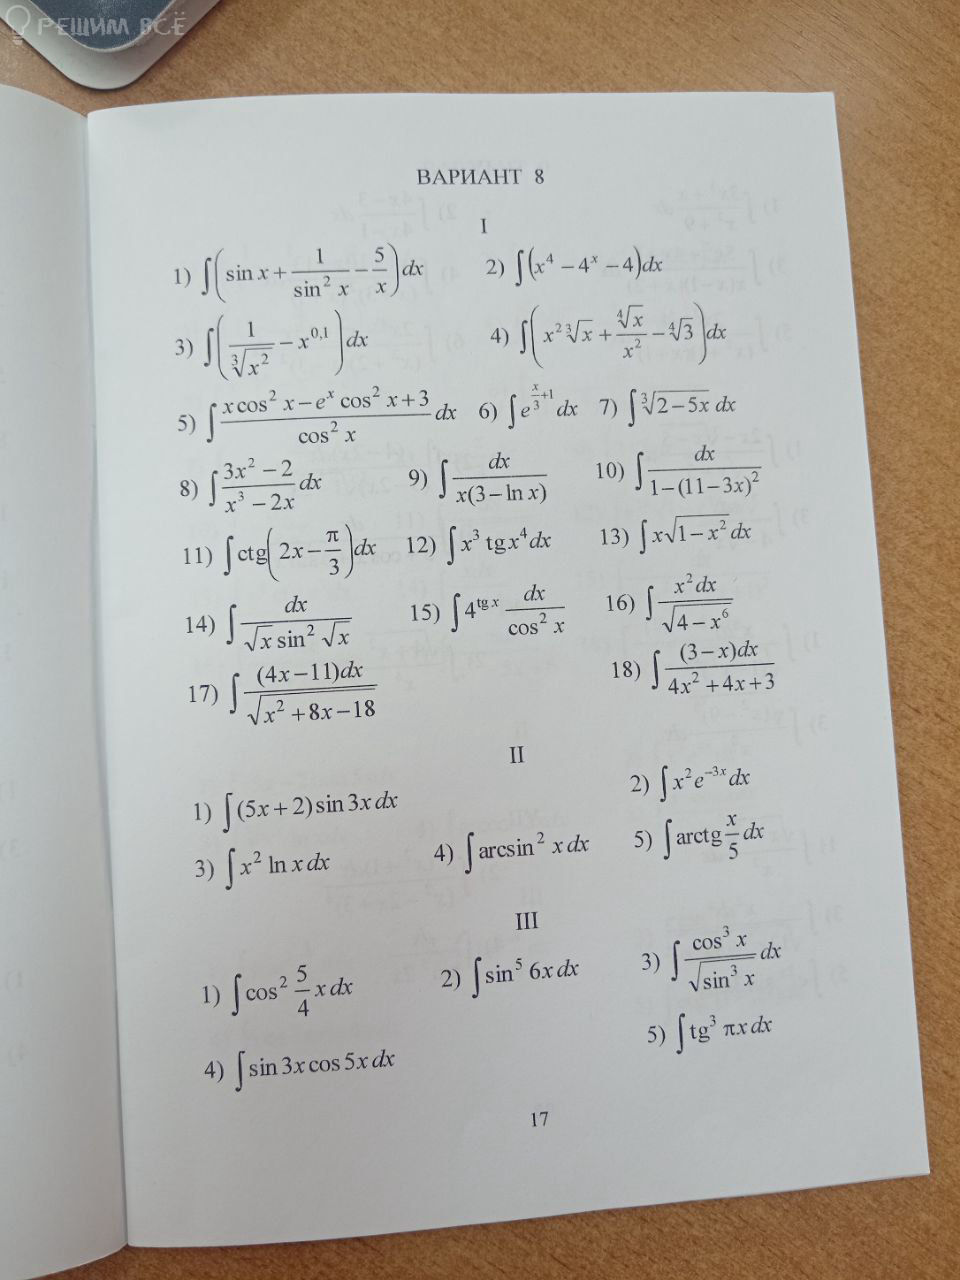 РЕШИМ ВСЁ
ВАРИАНТ 8
I
1) ∫(sin x + 1/sin² x − 5/x)dx 2) ∫(x⁴ − 4ˣ − 4)dx
3) ∫(1/∛(x²) − x^0,1)dx 4) ∫(x²∛x + ∜x/x² − ∜3)dx
5) ∫(x cos² x − eˣ cos² x + 3)/(cos² x) dx 6) ∫e^(x/3+1) dx 7) ∫∛(2−5x) dx
8) ∫(3x² − 2)/(x³ − 2x) dx 9) ∫dx/(x(3−ln x)) 10) ∫dx/(1−(11−3x)²)
11) ∫ctg(2x − π/3)dx 12) ∫x³ tg x⁴ dx 13) ∫x√(1−x²) dx
14) ∫dx/(√x sin² √x) 15) ∫4^(tg x) dx/(cos² x) 16) ∫x² dx/√(4−x⁶)
17) ∫(4x−11)dx/√(x² +8x−18) 18) ∫(3−x)dx/(4x² +4x+3)
II
1) ∫(5x+2)sin 3x dx 2) ∫x² e^(−3x) dx
3) ∫x² ln x dx 4) ∫arcsin² x dx 5) ∫arctg x/5 dx
III
1) ∫cos² 5/4 x dx 2) ∫sin⁵ 6x dx 3) ∫cos³ x/√(sin³ x) dx
4) ∫sin 3x cos 5x dx 5) ∫tg³ πx dx
17